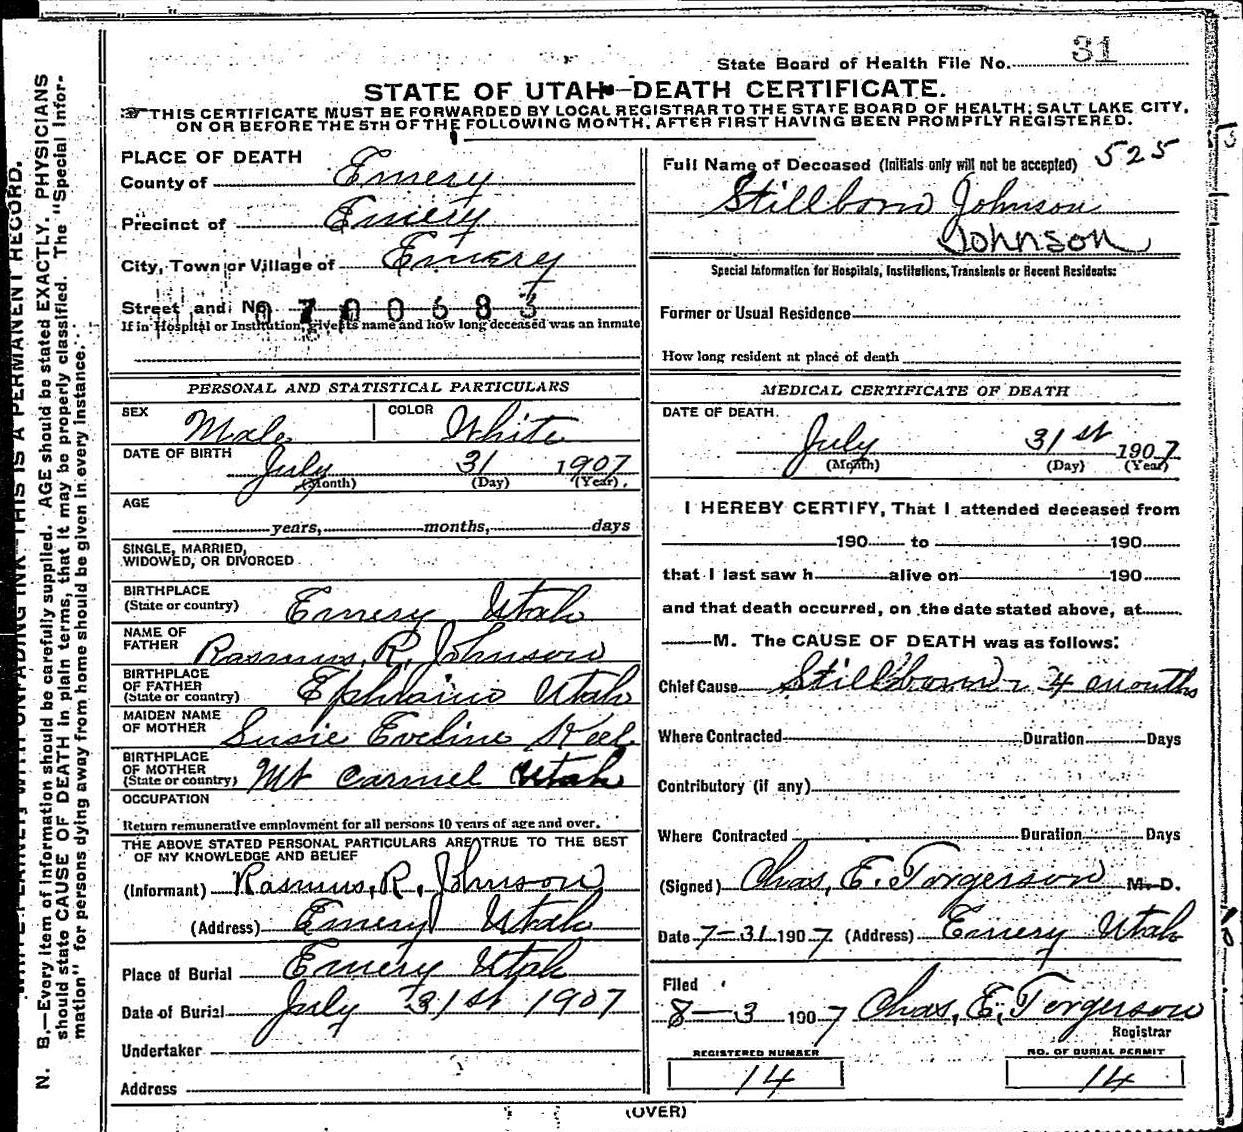 State Board of Health File No. 31
STATE OF UTAH—DEATH CERTIFICATE.
THIS CERTIFICATE MUST BE FORWARDED BY LOCAL REGISTRAR TO THE STATE BOARD OF HEALTH, SALT LAKE CITY,
ON OR BEFORE THE 5TH OF THE FOLLOWING MONTH, AFTER FIRST HAVING BEEN PROMPTLY REGISTERED.
N. B.—Every item of information should be carefully supplied. AGE should be stated EXACTLY. PHYSICIANS
should state CAUSE OF DEATH in plain terms, that it may be properly classified. The "Special Infor-
mation" for persons dying away from home should be given in every instance.
THIS IS A PERMANENT RECORD.
PLACE OF DEATH
County of Emery
Precinct of Emery
City, Town or Village of Emery
Street and No. 0700683
If in Hospital or Institution, give its name and how long deceased was an inmate
PERSONAL AND STATISTICAL PARTICULARS
SEX Male COLOR White
DATE OF BIRTH July 31 1907
(Month) (Day) (Year).
AGE
years, months, days
SINGLE, MARRIED,
WIDOWED, OR DIVORCED
BIRTHPLACE
(State or country) Emery Utah
NAME OF
FATHER Rasmus, R, Johnson
BIRTHPLACE
OF FATHER
(State or country) Ephraim Utah
MAIDEN NAME
OF MOTHER Susie Eveline
BIRTHPLACE
OF MOTHER
(State or country) Mt Carmel Utah
OCCUPATION
Return remunerative employment for all persons 10 years of age and over.
THE ABOVE STATED PERSONAL PARTICULARS ARE TRUE TO THE BEST
OF MY KNOWLEDGE AND BELIEF
(Informant) Rasmus, R, Johnson
(Address) Emery Utah
Place of Burial Emery Utah
Date of Burial July 31st 1907
Undertaker
Address
Full Name of Deceased (Initials only will not be accepted) 525
Stillborn Johnson
Johnson
Special Information for Hospitals, Institutions, Transients or Recent Residents:
Former or Usual Residence
How long resident at place of death
MEDICAL CERTIFICATE OF DEATH
DATE OF DEATH.
July 31st 1907
(Month) (Day) (Year)
I HEREBY CERTIFY, That I attended deceased from
190 to 190
that I last saw h alive on 190
and that death occurred, on the date stated above, at
M. The CAUSE OF DEATH was as follows:
Chief Cause Stillborn - 4 months
Where Contracted Duration Days
Contributory (if any)
Where Contracted Duration Days
(Signed) Chas, E. Torgerson M. D.
Date 7-31 1907 (Address) Emery Utah
Filed
8-3 1907 Chas, E, Torgerson
Registrar
REGISTERED NUMBER
14
NO. OF BURIAL PERMIT
14
(OVER)